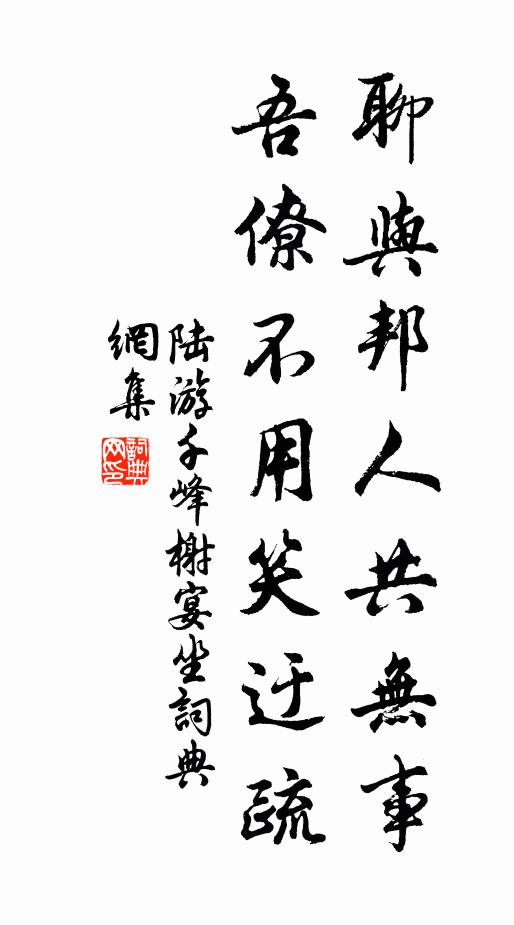 聊與邦人共無事
吾僚不用笑迂疏
陆游千峰榭宴坐詞典
網集
詞典
网印